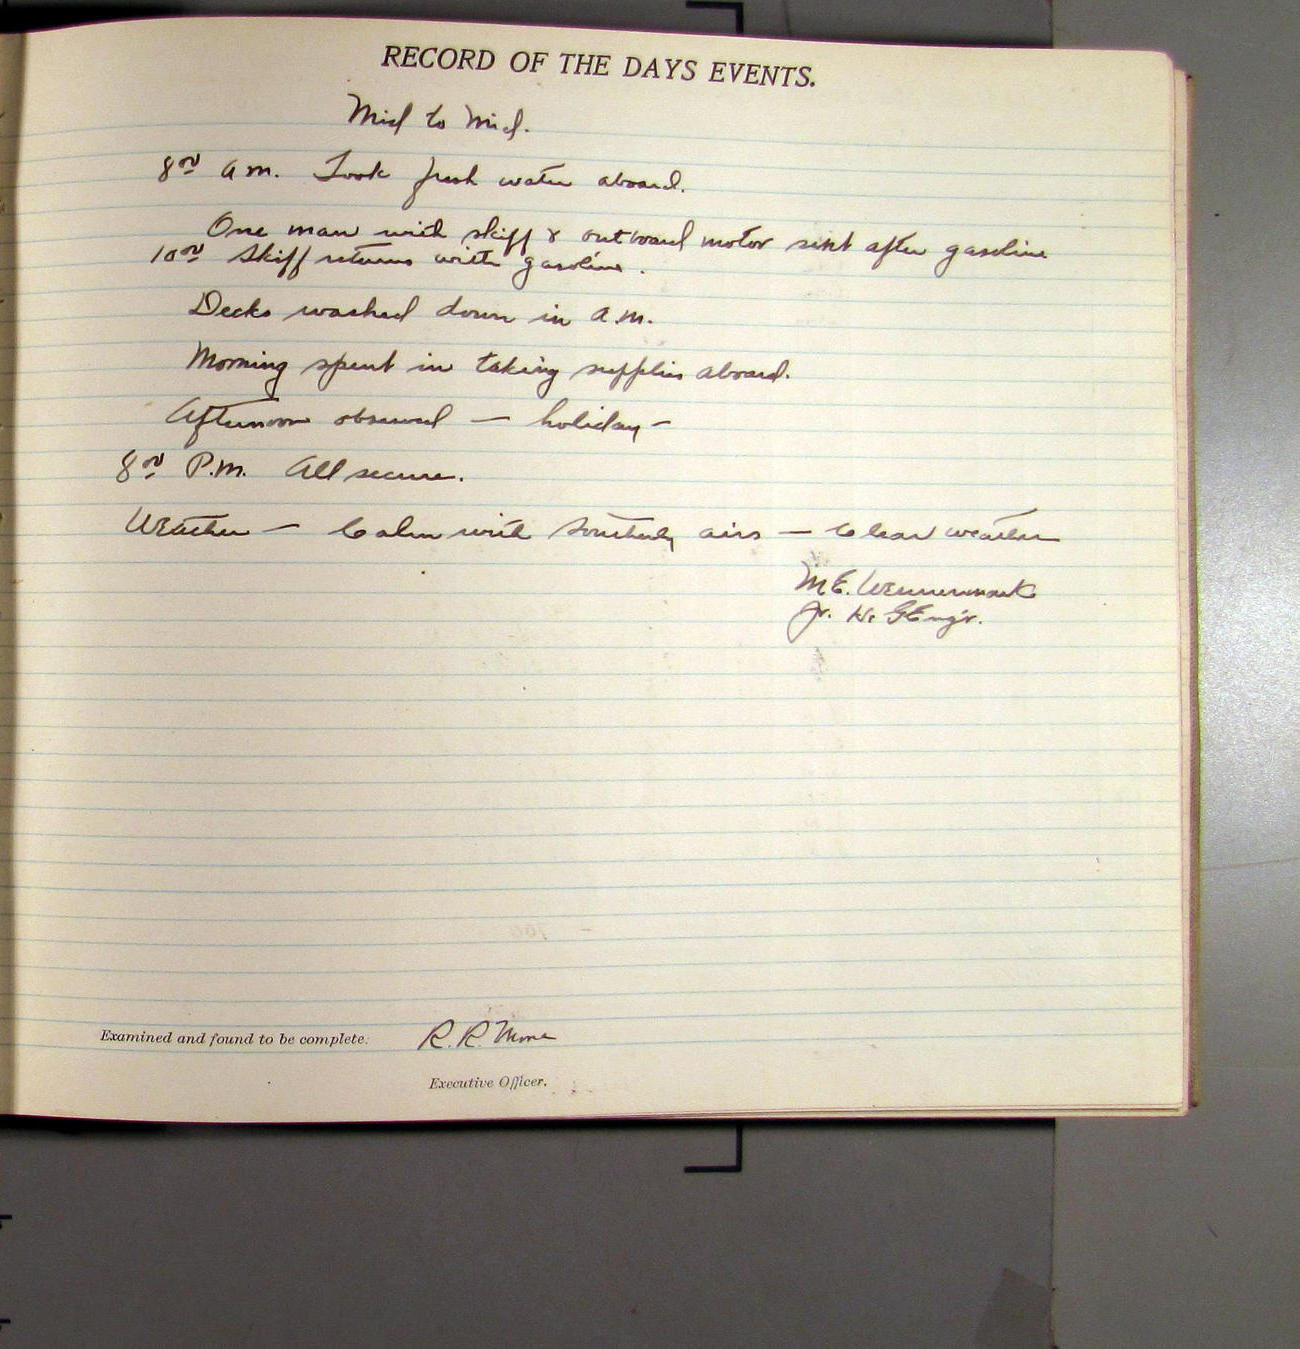 RECORD OF THE DAYS EVENTS.
Mid to Mid.
8⁰⁰ a.m. Took fresh water aboard.
One man with skiff & outboard motor sent after gasoline
10⁰⁰ Skiff returns with gasoline.
Decks washed down in a.m.
Morning spent in taking supplies aboard.
Afternoon observed — holiday —
8⁰⁰ P.m. All secure.
Weather — Calm with Southerly airs — Clear weather
M.E. Wennermark
Jr. H. & G. Engr.
Examined and found to be complete: R. R. Moore
Executive Officer.